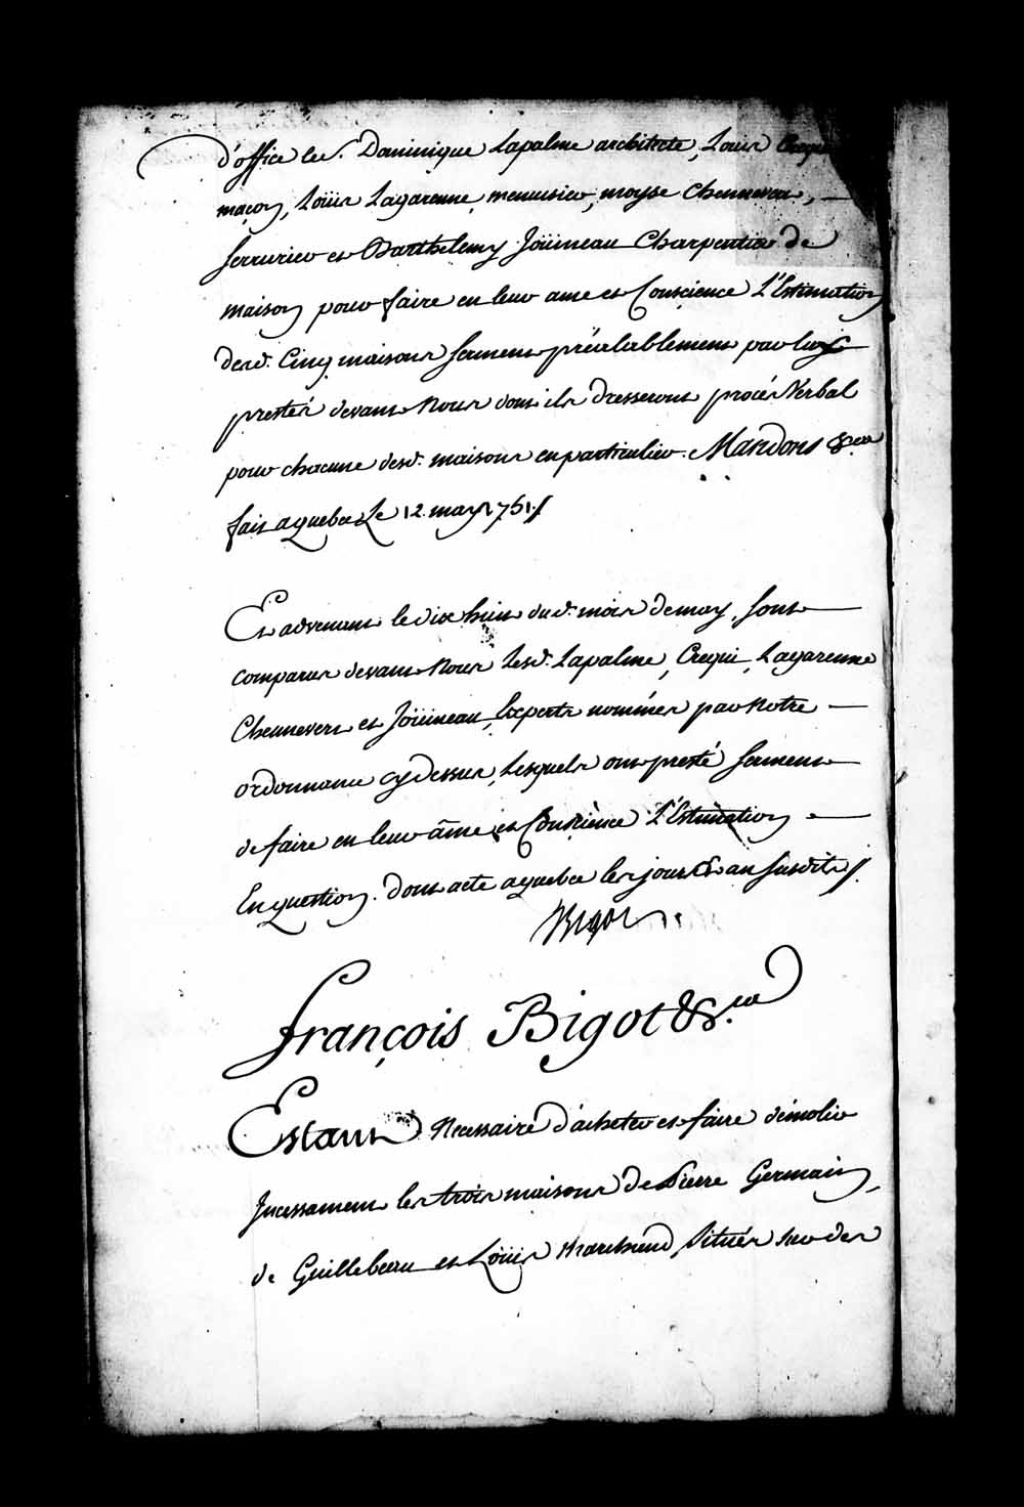 d'office les. Dominique Lapalme architecte, Louis Crequi
maçon, Loüis Lagarenne, menuisier, moyse Chennevers,
serrurier et Barthelemy Joüineau Charpentier de
maison pour faire en leur ame et Conscience L'Estimation
desd. Cinq maisons serment préalablement par Eux
presté devant Nous dont ils dresseront procés Verbal
pour chacune desd. maisons en particulier. Mandons &.ca
fait a quebec Le 12. may 1751 ./.
Et advenant le dix huit dud. mois de may, sont
comparus devant Nous Lesd. Lapalme, Crequi, Lagarenne
Chennevers et Joüineau, Experts nommés par Notre
ordonnance cy dessus, Lesquels ont presté serment
de faire en leur âme et Conscience L'Estimation
En question. Dont acte a quebec les jour & an susdits ./.
Bigot
françois Bigot &.ca
Estant Necessaire d'acheter et faire démolir
Incessament les trois maisons de Pierre Germain,
de Guillebeau et Loüis Marchand, Situés sur des